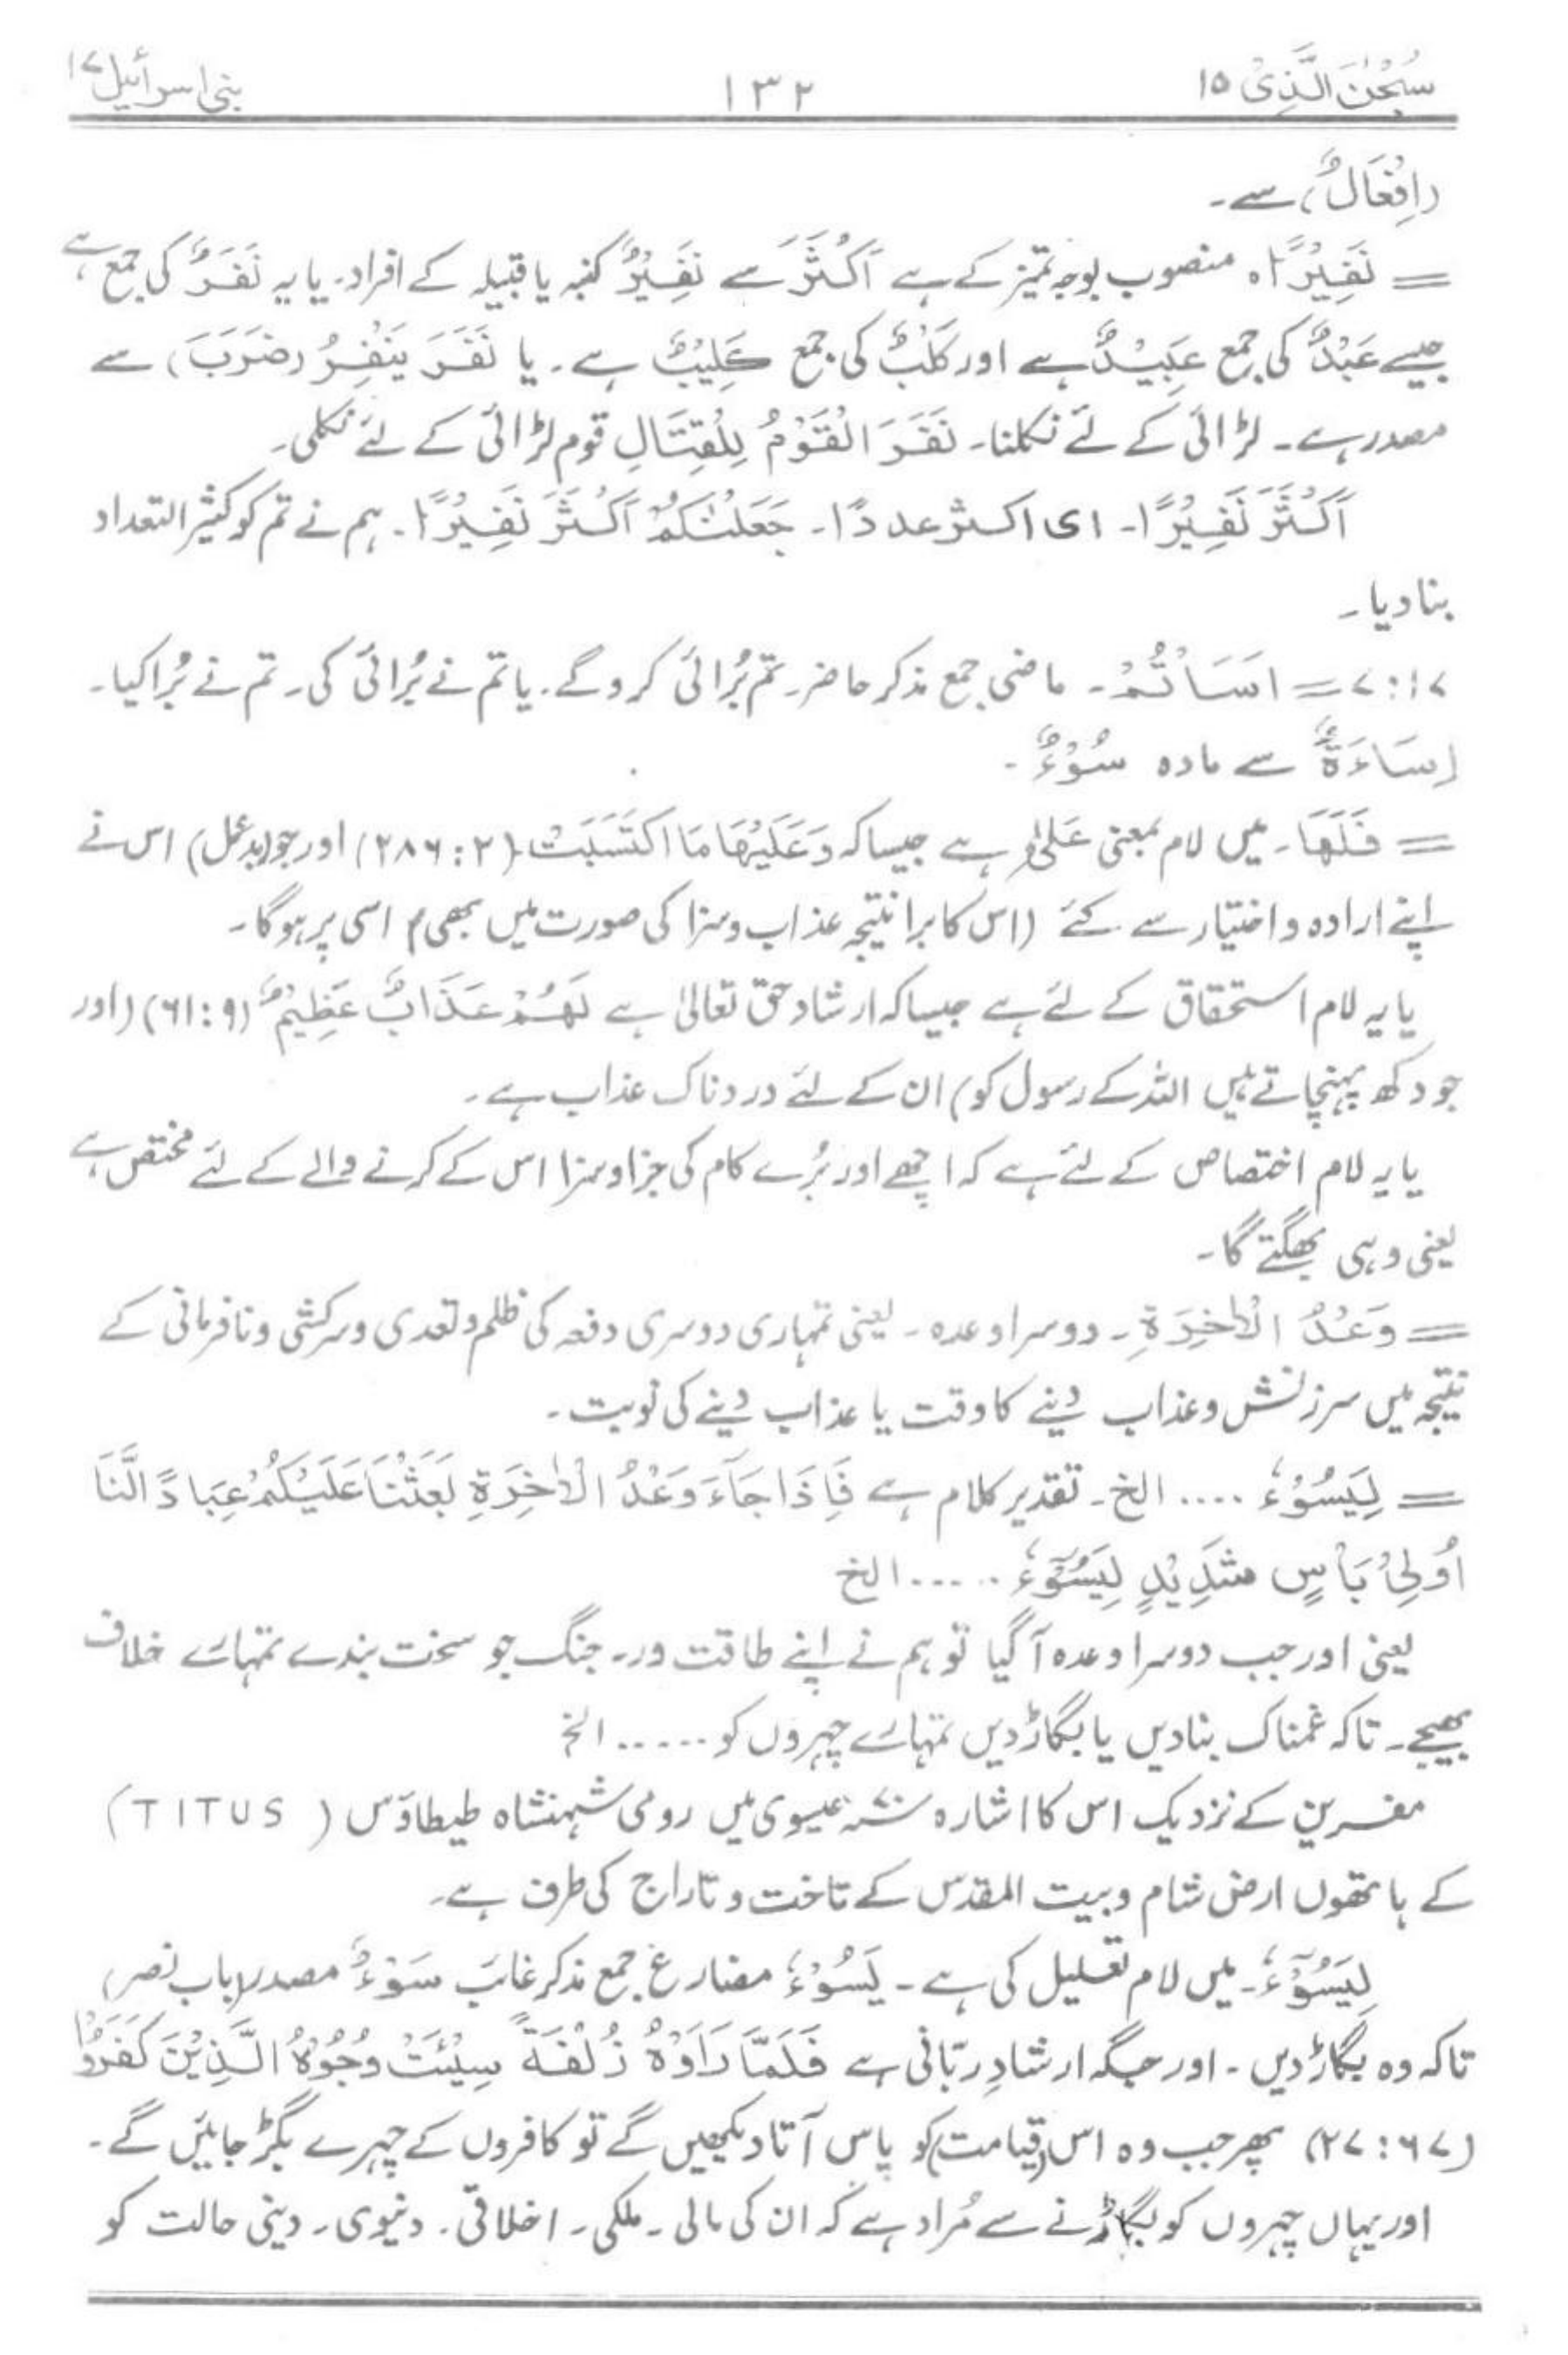 سُبْحٰنَ الَّذِیْ ۱۵
۱۳۲
بنی اسرائیل ۱۷
(اِفْعَالٌ) سے۔
= نَفِیْرًا ہ منصوب بوجہ تمیز کے ہے اَکْثَرَ سے نَفِیْرٌ کنبہ یا قبیلہ کے افراد۔ یا یہ نَفَرٌ کی جمع ہے
جیسے عَبْدٌ کی جمع عَبِیْدٌ ہے اور کَلْبٌ کی جمع کَلِیْبٌ ہے۔ یا نَفَرَ یَنْفِرُ (ضَرَبَ) سے
مصدر ہے۔ لڑائی کے لئے نکلنا۔ نَفَرَ الْقَوْمُ لِلْقِتَالِ قوم لڑائی کے لئے نکلی۔
اَکْثَرَ نَفِیْرًا۔ ای اکثر عددًا۔ جَعَلْنٰکُمْ اَکْثَرَ نَفِیْرًا۔ ہم نے تم کو کثیر التعداد
بنا دیا۔
۱۷:۷ = اَسَاْتُمْ۔ ماضی جمع مذکر حاضر۔ تم بُرائی کروگے۔ یا تم نے بُرائی کی۔ تم نے بُرا کیا۔
اِسَاءَۃٌ سے مادہ سُوْءٌ۔
= فَلَهَا۔ میں لام بمعنی عَلٰی ہے جیساکہ وَعَلَیْهَا مَا اکْتَسَبَتْ (۲:۲۸۶) اور جو (بدعمل) اس نے
اپنے ارادہ و اختیار سے کئے (اس کا برا نتیجہ عذاب و سزا کی صورت میں بھی) اسی پر ہوگا۔
یا یہ لام استحقاق کے لئے ہے جیساکہ ارشاد حق تعالیٰ ہے لَهُمْ عَذَابٌ عَظِیْمٌ (۹:۶۱) (اور
جو دکھ پہنچاتے ہیں اللہ کے رسول کو) ان کے لئے دردناک عذاب ہے۔
یا یہ لام اختصاص کے لئے ہے کہ اچھے اور بُرے کام کی جزا و سزا اس کے کرنے والے کے لئے مختص ہے
یعنی وہی بھگتے گا۔
= وَعْدُ الْاٰخِرَةِ۔ دوسرا وعدہ۔ یعنی تمہاری دوسری دفعہ کی ظلم و تعدی و سرکشی و نافرمانی کے
نتیجہ میں سرزنش و عذاب دینے کا وقت یا عذاب دینے کی نوبت۔
= لِیَسُوْءٗ .... الخ۔ تقدیر کلام ہے فَاِذَا جَآءَ وَعْدُ الْاٰخِرَةِ بَعَثْنَا عَلَیْکُمْ عِبَادًا لَّنَا
اُولِیْ بَاْسٍ شَدِیْدٍ لِیَسُوْٓءٗ ..... الخ
یعنی اور جب دوسرا وعدہ آگیا تو ہم نے اپنے طاقت ور۔ جنگ جو سخت بندے تمہارے خلاف
بھیجے۔ تاکہ غمناک بنادیں یا بگاڑ دیں تمہارے چہروں کو ..... الخ
مفسرین کے نزدیک اس کا اشارہ ۷۰ء عیسوی میں رومی شہنشاہ طیطاؤس ( TITUS )
کے ہاتھوں ارض شام و بیت المقدس کے تاخت و تاراج کی طرف ہے۔
لِیَسُوْٓءٗ۔ میں لام تعلیل کی ہے۔ یَسُوْءٗ مضارع جمع مذکر غائب سَوْءٌ مصدر (باب نصر)
تاکہ وہ بگاڑ دیں۔ اور جگہ ارشادِ ربّانی ہے فَلَمَّا رَاَوْهُ زُلْفَةً سِیْئَتْ وُجُوْهُ الَّذِیْنَ کَفَرُوْا
(۶۷:۲۷) پھر جب وہ اس (قیامت) کو پاس آتا دیکھیں گے تو کافروں کے چہرے بگڑ جائیں گے۔
اور یہاں چہروں کو بگاڑنے سے مُراد ہے کہ ان کی مالی۔ ملکی۔ اخلاقی۔ دنیوی۔ دینی حالت کو